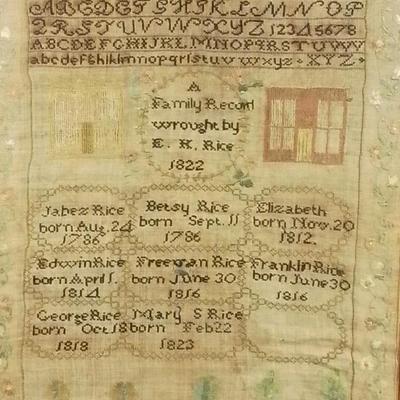 ABCDEFGHIJKLMNOP
QRSTUVWXYZ 12345678
ABCDEFGHIJKLMNOPQRSTUVW
abcdefghiklmnopqrlstuvwxyz XYZ
A
Family Record
wrought by
E. H. Rice
1822
Jabez Rice
born Aug. 24
1786
Betsy Rice
born Sept. 11
1786
Elizabeth
born Nov. 20
1812.
Edwin Rice
born April 1.
1814
Freeman Rice
born June 30
1816
Franklin Rice
born June 30
1816
George Rice
born Oct 18
1818
Mary S Rice
born Feb 22
1823